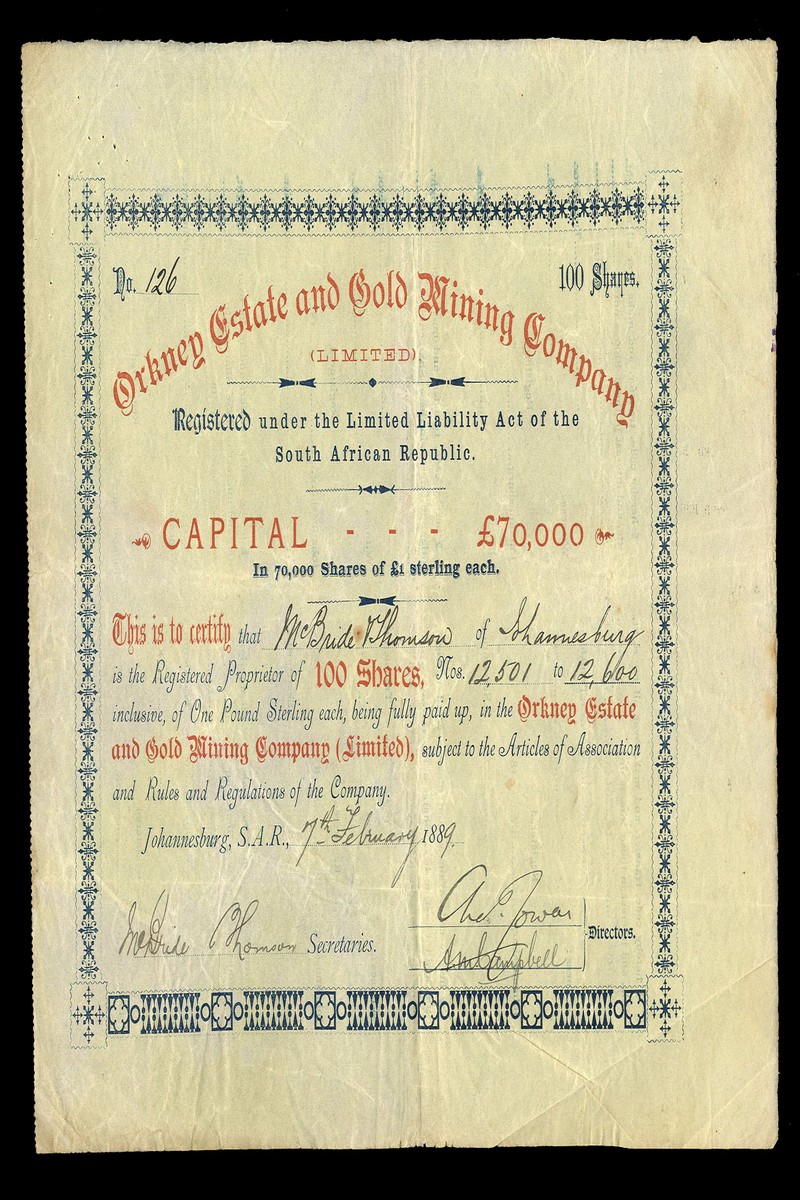 No. 126
100 Shares.
Orkney Estate and Gold Mining Company
(LIMITED).
Registered under the Limited Liability Act of the
South African Republic.
CAPITAL - - - £70,000
In 70,000 Shares of £1 sterling each.
This is to certify that McBride Thomson of Johannesburg
is the Registered Proprietor of 100 Shares, Nos. 12,501 to 12,600
inclusive, of One Pound Sterling each, being fully paid up, in the Orkney Estate
and Gold Mining Company (Limited), subject to the Articles of Association
and Rules and Regulations of the Company.
Johannesburg, S.A.R., 7th February 1889.
McBride Thomson Secretaries.
Campbell
Directors.